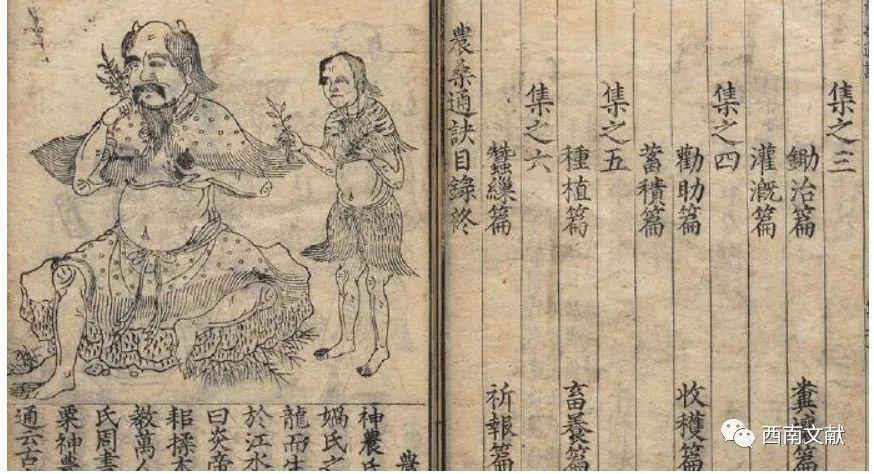 集之三
鋤治篇 糞壤篇
灌溉篇
集之四
勸助篇 收穫篇
蓄積篇
集之五
種植篇 畜養篇
集之六
蠶繅篇 祈報篇
農桑通訣目錄終
農
神農氏
媧氏之
龍而生
於江水
曰炎帝
耜揉木
教萬人
氏周書
粟神農
通云古
西南文献